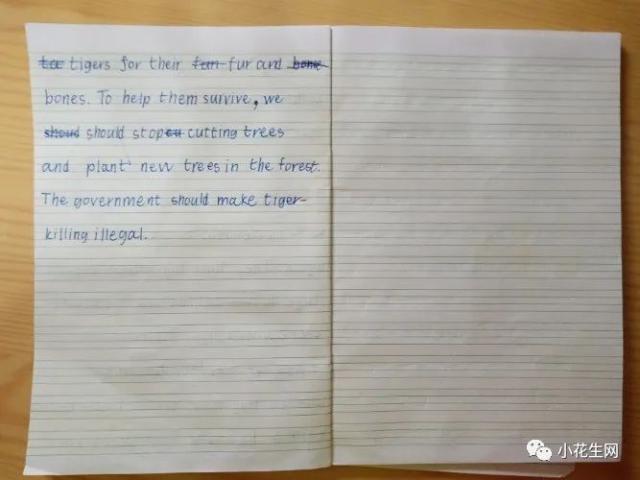 tigers for their fur and
bones. To help them survive, we
should stop cutting trees
and plant new trees in the forest.
The government should make tiger-
killing illegal.
小花生网